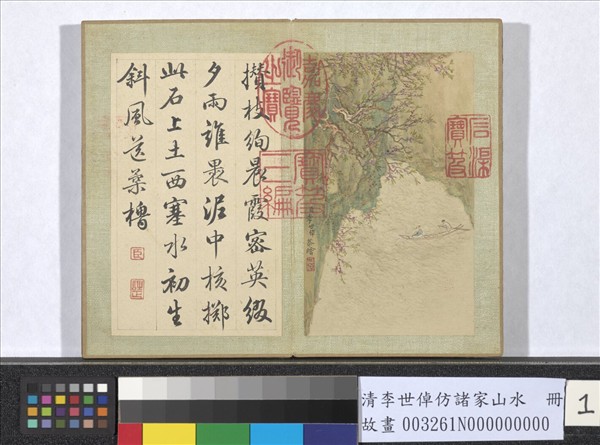 攢枝絢晨霞密英綴
夕雨誰褁泥中核擲
此石上土西塞水初生
斜風送柔櫓
嘉慶御覽之寶
寶笈三編
石渠寶笈
清李世倬仿諸家山水 冊
故畫 003261N000000000
1